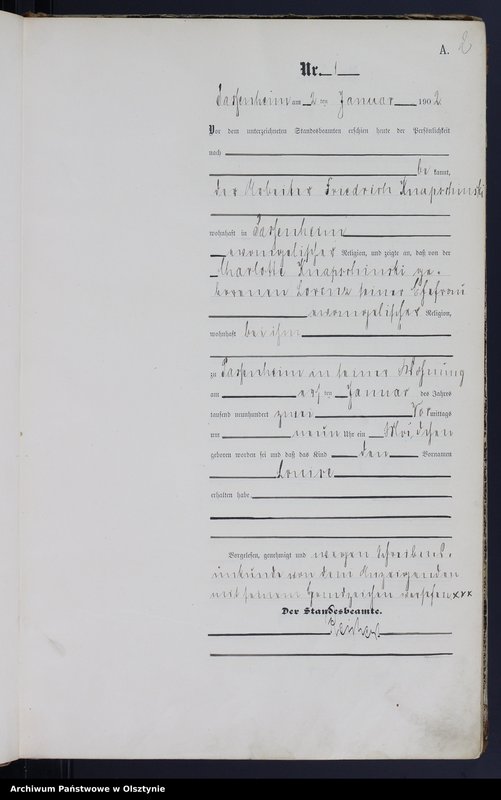 A. 2
Nr. 1
Passenheim am 2 ten Januar 1902
Vor dem unterzeichneten Standesbeamten erschien heute der Persönlichkeit
nach
bekannt,
der Arbeiter Friedrich Knapschinski
wohnhaft in Passenheim
evangelischer Religion, und zeigte an, daß von der
Charlotte Knapschinski ge-
borenen Lorenz seiner Ehefrau
evangelischer Religion,
wohnhaft bei ihm
zu Passenheim in seiner Wohnung
am ersten Januar des Jahres
tausend neunhundert zwei Vormittags
um neun Uhr ein Mädchen
geboren worden sei und daß das Kind den Vornamen
Louise
erhalten habe.
Vorgelesen, genehmigt und wegen Schreibens-
unkunde von dem Anzeigenden
mit seinem Handzeichen versehen xxx
Der Standesbeamte.
Archiwum Państwowe w Olsztynie